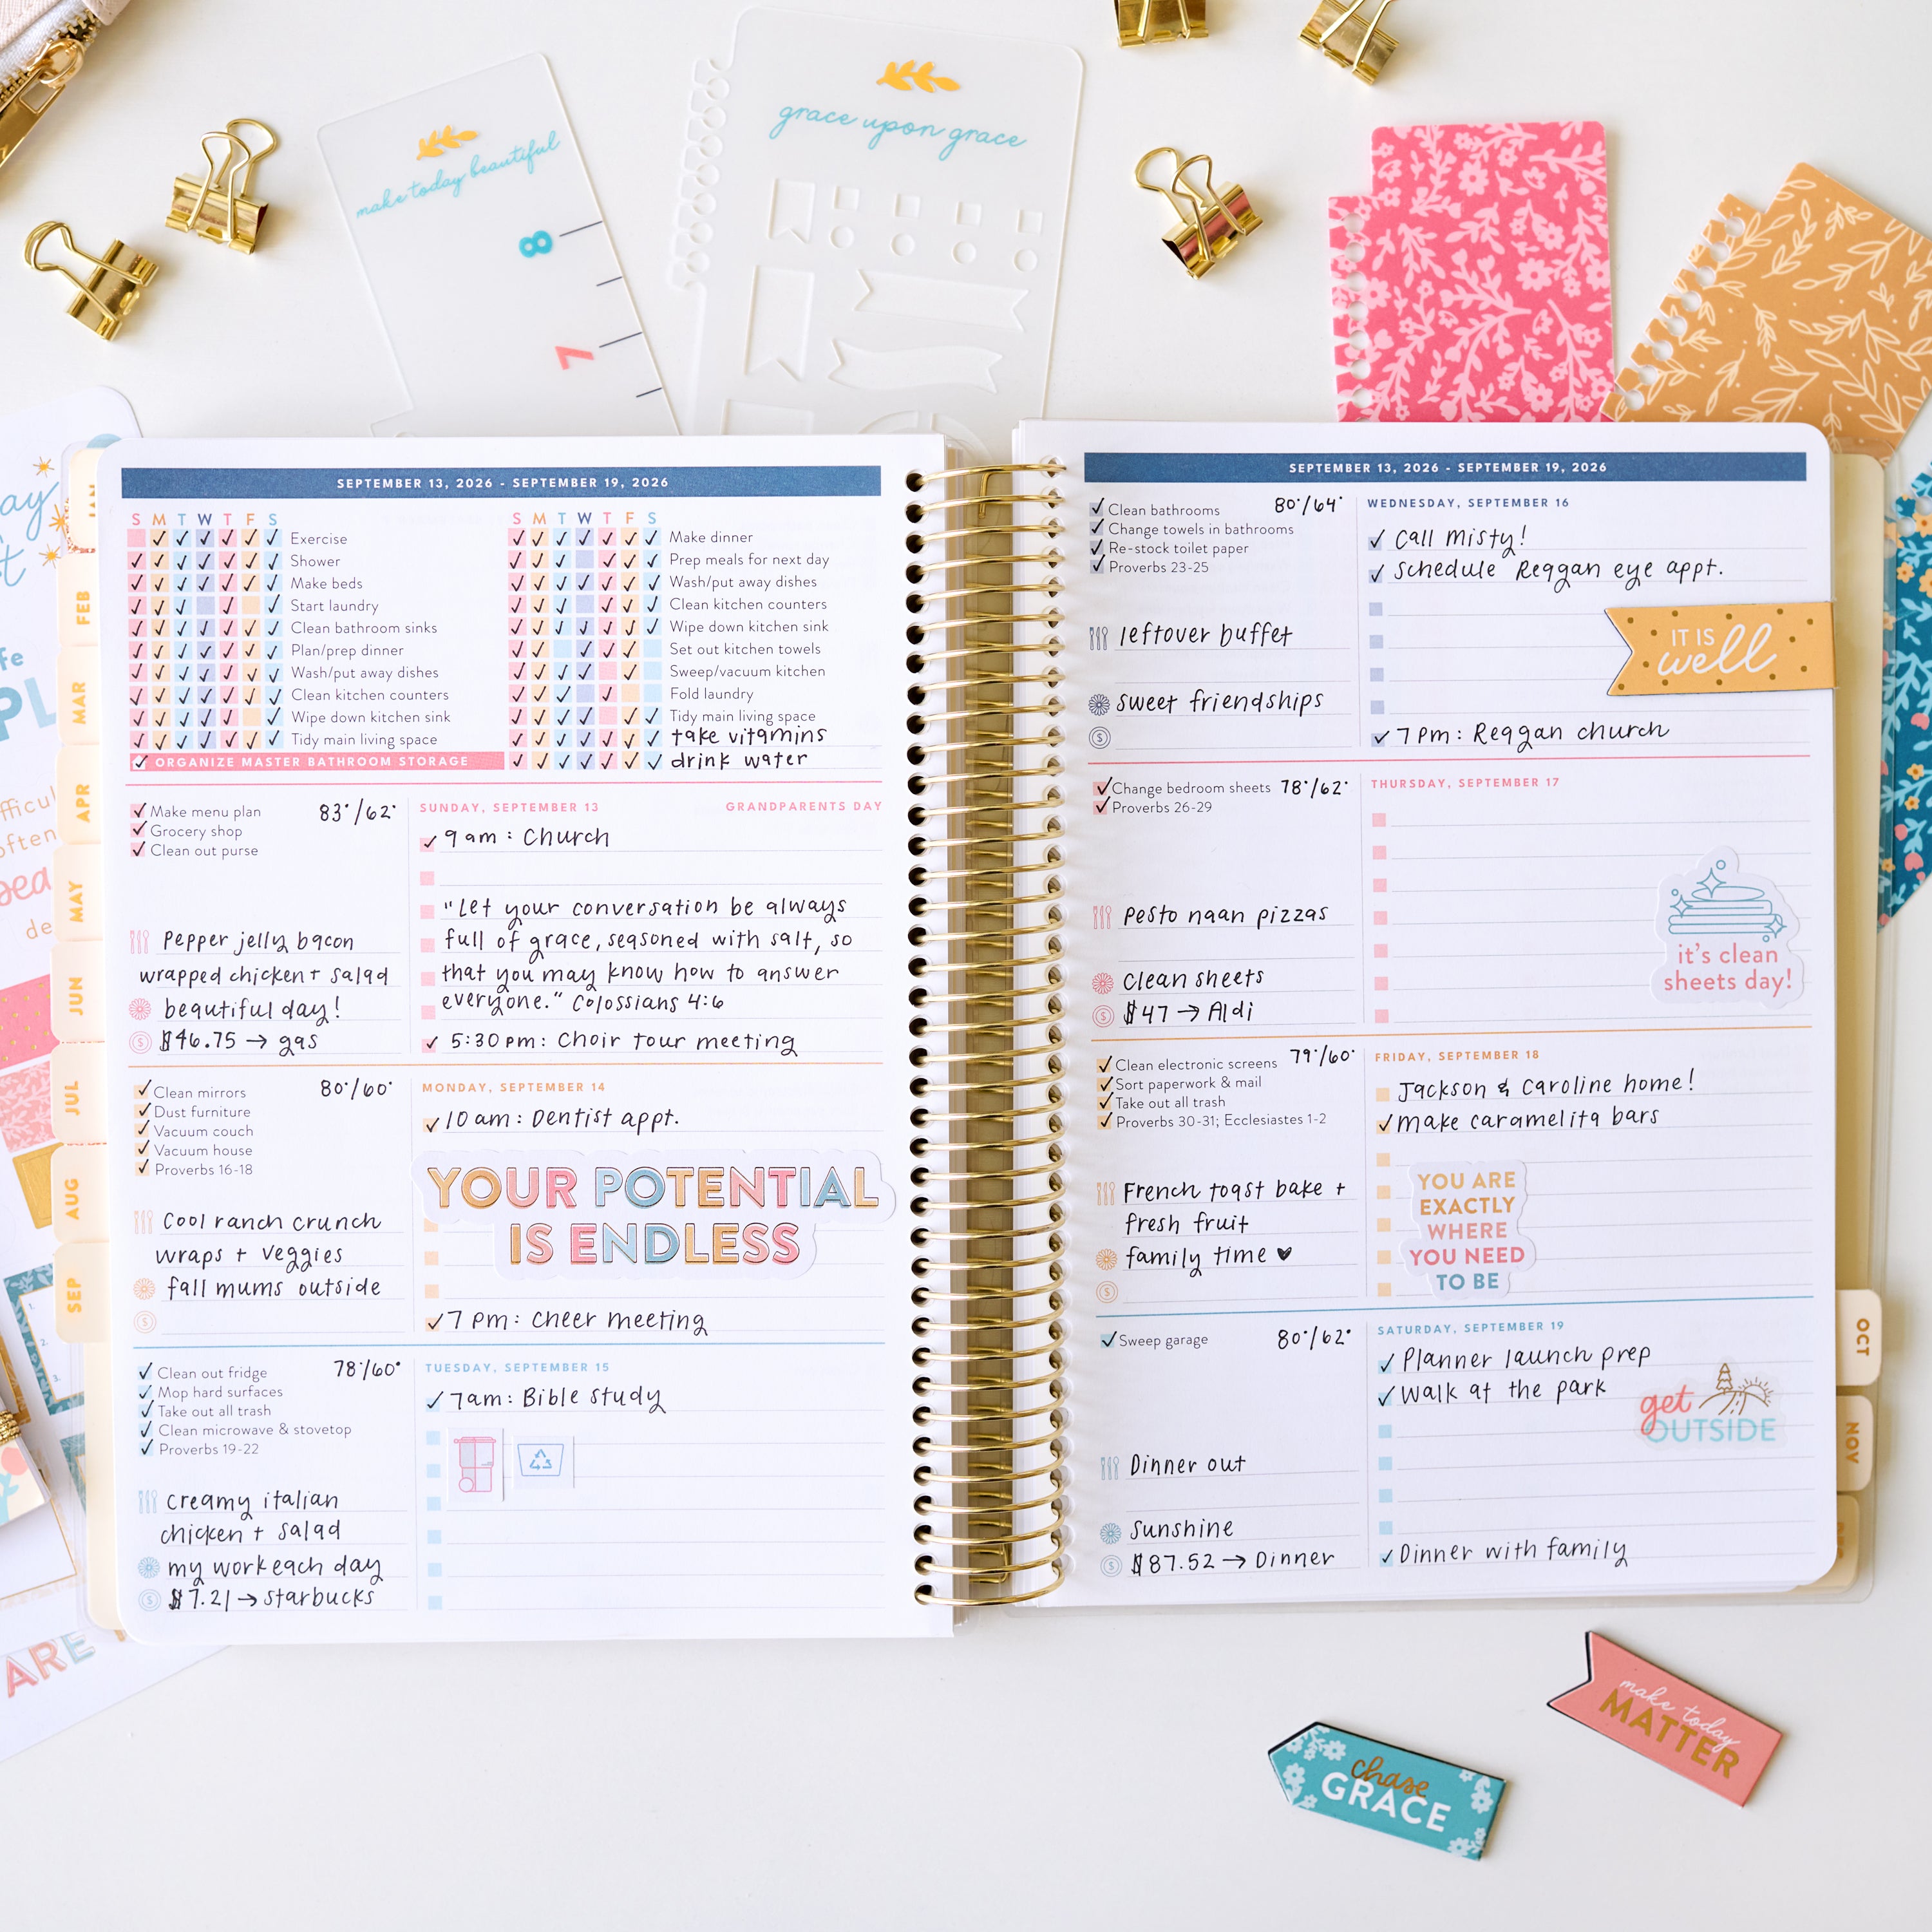 make today beautiful
8
7
grace upon grace
JAN
FEB
MAR
APR
MAY
JUN
JUL
AUG
SEP
SEPTEMBER 13, 2026 - SEPTEMBER 19, 2026
S M T W T F S
Exercise
Shower
Make beds
Start laundry
Clean bathroom sinks
Plan/prep dinner
Wash/put away dishes
Clean kitchen counters
Wipe down kitchen sink
Tidy main living space
ORGANIZE MASTER BATHROOM STORAGE
S M T W T F S
Make dinner
Prep meals for next day
Wash/put away dishes
Clean kitchen counters
Wipe down kitchen sink
Set out kitchen towels
Sweep/vacuum kitchen
Fold laundry
Tidy main living space
take vitamins
drink water
Make menu plan
Grocery shop
Clean out purse
83°/62°
Pepper jelly bacon
wrapped chicken + salad
beautiful day!
$46.75 → gas
SUNDAY, SEPTEMBER 13
GRANDPARENTS DAY
9am: Church
"Let your conversation be always
full of grace, seasoned with salt, so
that you may know how to answer
everyone." Colossians 4:6
5:30pm: Choir tour meeting
Clean mirrors
Dust furniture
Vacuum couch
Vacuum house
Proverbs 16-18
80°/60°
Cool ranch crunch
wraps + veggies
fall mums outside
MONDAY, SEPTEMBER 14
10am: Dentist appt.
YOUR POTENTIAL
IS ENDLESS
7 pm: Cheer meeting
Clean out fridge
Mop hard surfaces
Take out all trash
Clean microwave & stovetop
Proverbs 19-22
78°/60°
creamy italian
chicken + salad
my work each day
$7.21 → Starbucks
TUESDAY, SEPTEMBER 15
7am: Bible study
SEPTEMBER 13, 2026 - SEPTEMBER 19, 2026
Clean bathrooms
Change towels in bathrooms
Re-stock toilet paper
Proverbs 23-25
80°/64°
leftover buffet
sweet friendships
WEDNESDAY, SEPTEMBER 16
Call Misty!
Schedule Reagan eye appt.
IT IS
well
7pm: Reagan church
Change bedroom sheets
Proverbs 26-29
78°/62°
Pesto naan pizzas
Clean sheets
$47 → Aldi
THURSDAY, SEPTEMBER 17
it's clean
sheets day!
Clean electronic screens
Sort paperwork & mail
Take out all trash
Proverbs 30-31; Ecclesiastes 1-2
79°/60°
French toast bake +
fresh fruit
family time ♥
FRIDAY, SEPTEMBER 18
Jackson & Caroline home!
Make caramelita bars
YOU ARE
EXACTLY
WHERE
YOU NEED
TO BE
Sweep garage
80°/62°
Dinner out
Sunshine
$87.52 → Dinner
SATURDAY, SEPTEMBER 19
Planner launch prep
Walk at the park
get
OUTSIDE
Dinner with family
OCT
NOV
make today
MATTER
chase
GRACE
ARE